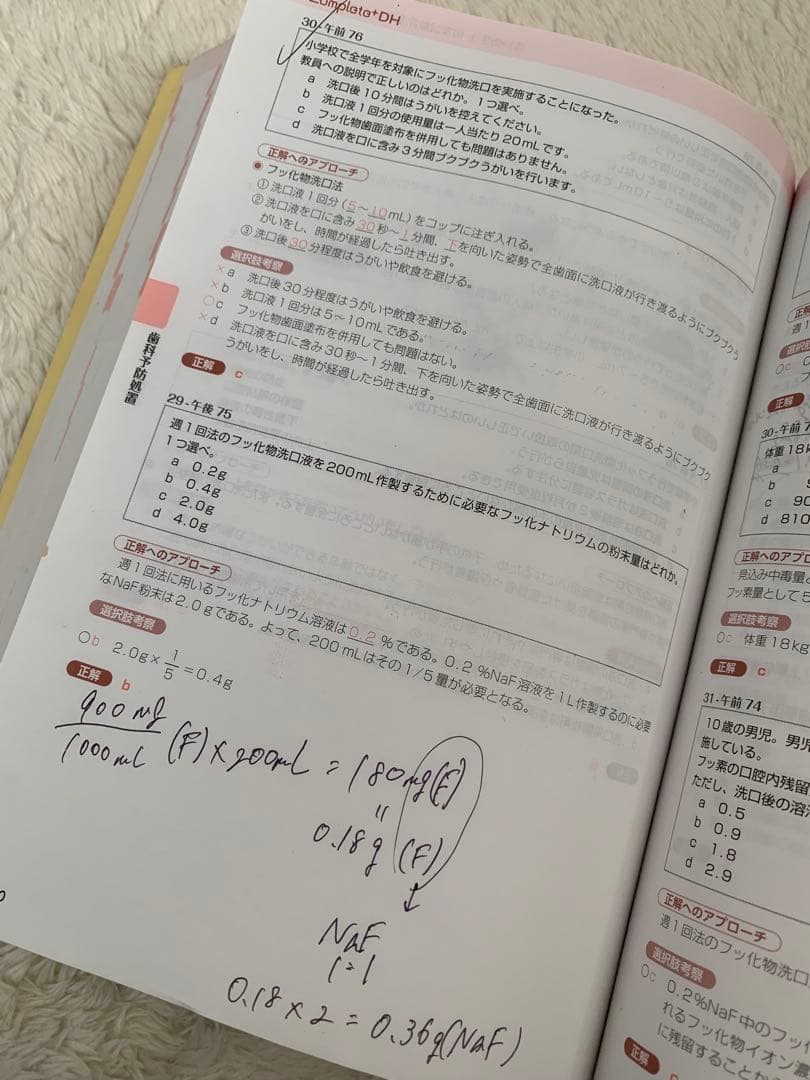 Complete+DH
30-午前 76
小学校で全学年を対象にフッ化物洗口を実施することになった。
教員への説明で正しいのはどれか。1つ選べ。
a 洗口後10分間はうがいを控えてください。
b 洗口液1回分の使用量は一人当たり20mLです。
c フッ化物歯面塗布を併用しても問題はありません。
d 洗口液を口に含み3分間ブクブクうがいを行います。
正解へのアプローチ
フッ化物洗口法
① 洗口液1回分(5〜10mL)をコップに注ぎ入れる。
② 洗口液を口に含み30秒〜1分間、下を向いた姿勢で全歯面に洗口液が行き渡るようにブクブクう
がいをし、時間が経過したら吐き出す。
③ 洗口後30分程度はうがいや飲食を避ける。
選択肢考察
×a 洗口後30分程度はうがいや飲食を避ける。
×b 洗口液1回分は5〜10mLである。
○c フッ化物歯面塗布を併用しても問題はない。
×d 洗口液を口に含み30秒〜1分間、下を向いた姿勢で全歯面に洗口液が行き渡るようにブクブク
うがいをし、時間が経過したら吐き出す。
正解 c
歯科予防処置
29-午後 75
週1回法のフッ化物洗口液を200mL作製するために必要なフッ化ナトリウムの粉末量はどれか。
1つ選べ。
a 0.2g
b 0.4g
c 2.0g
d 4.0g
正解へのアプローチ
週1回法に用いるフッ化ナトリウム溶液は0.2%である。0.2%NaF溶液を1L作製するのに必要
なNaF粉末は2.0gである。よって、200mLはその1/5量が必要となる。
選択肢考察
○b 2.0g×1/5=0.4g
正解 b
900mg/1000mL (F)×200mL=180mg(F)
〃
0.18g (F)
↕
NaF
1:1
0.18×2=0.36g(NaF)
正解
30-午前 7
体重18k
a
b
c 90
d 810
正解へのアプロー
見込み中毒量と
フッ素量として5
選択肢考察
○c 体重18kg
正解 c
31-午前 74
10歳の男児。男児
施している。
フッ素の口腔内残留
ただし、洗口後の溶
a 0.5
b 0.9
c 1.8
d 2.9
正解へのアプローチ
週1回法のフッ化物洗口
選択肢考察
○c 0.2%NaF中のフッ
れるフッ化物イオン
に残留することか
正解